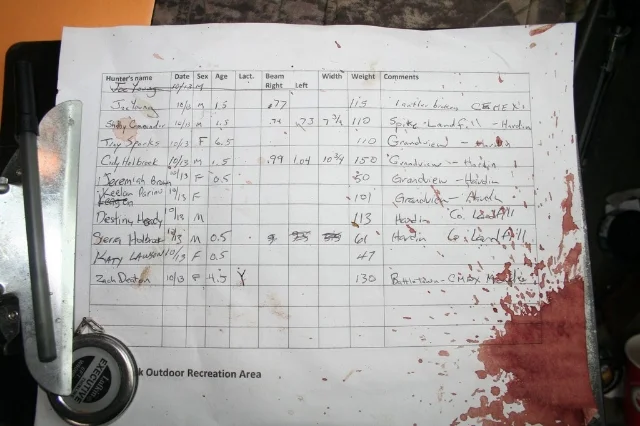 Hunter's name Date Sex Age Lact. Beam Right Left Width Weight Comments
Joe Young 10/13 M
Joe Young 10/13 M 1.5 .77 115
10/13 M 1.5 .73 7 3/4 110 Spike - Landfill - Hardin
Troy Sparks 10/13 F 6.5 110 Grandview - Hardin
Cody Holbrook 10/13 M 1.5 .99 1.04 10 3/4 150 Grandview - Hardin
Jeremiah Brown 10/13 F 0.5 50 Grandview - Hardin
Keelan 10/13 F 101 Grandview - Hardin
Destiny 10/13 M 113 Hardin Co. Landfill
Sierra Holbrook 10/13 M 0.5 61 Hardin Co. Landfill
Katy Lawson 10/13 F 0.5 47
Zach Deaton 10/13 F 4.5 Y 130
k Outdoor Recreation Area
EXECUTIVE